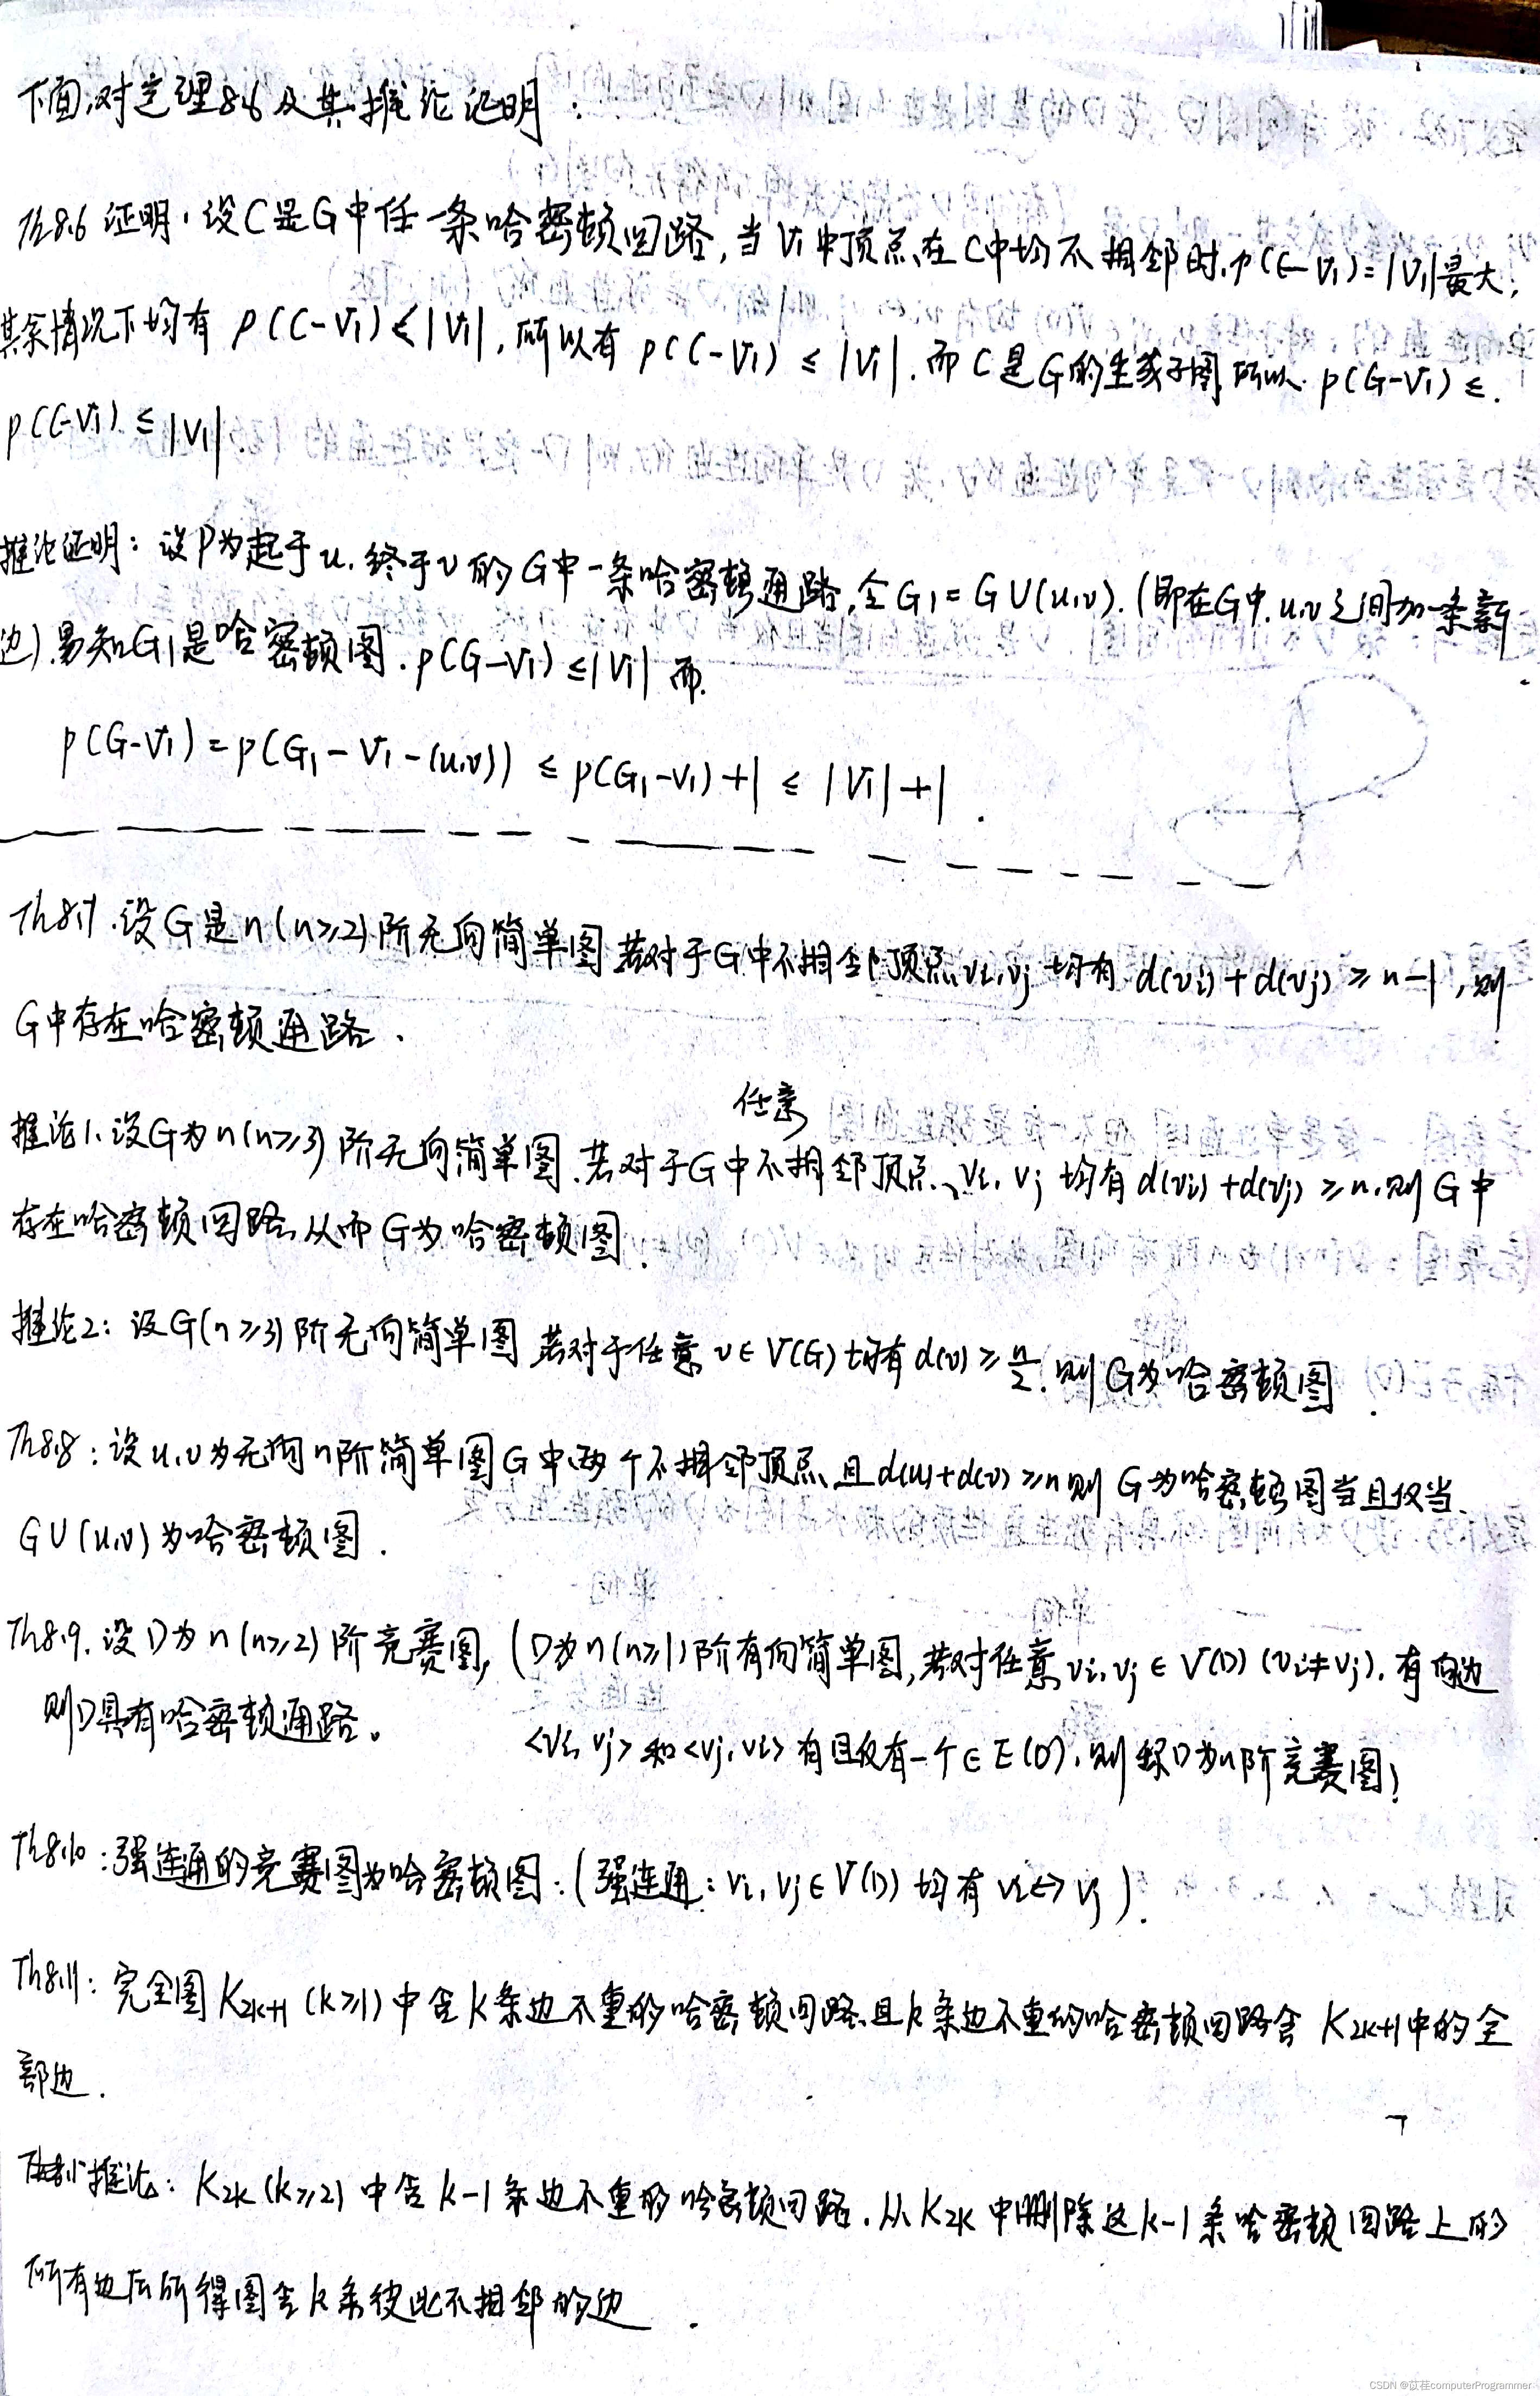 下面,对定理8.6及其推论证明:
Th8.6 证明:设C是G中任一条哈密顿回路,当V1中顶点在C中均不相邻时,p(C-V1)=|V1|最大;
其余情况下均有 p(C-V1)<|V1|,所以有 p(C-V1) ≤ |V1|.而C是G的生成子图,所以 p(G-V1) ≤.
p(C-V1) ≤ |V1|.
推论证明:设P为起于u.终于v的G中一条哈密顿通路,令G1=G∪(u,v).(即在G中.u,v之间加一条新
边).易知G1是哈密顿图.p(G-V1)≤|V1| 而.
p(G-V1) = p(G1-V1-(u,v)) ≤ p(G1-V1)+1 ≤ |V1|+1.
Th8.7.设G是n(n≥2)阶无向简单图 若对于G中不相邻顶点vi,vj 均有 d(vi)+d(vj)≥n-1,则
G中存在哈密顿通路.
任意
推论1.设G为n(n≥3)阶无向简单图.若对于G中不相邻顶点、vi,vj 均有d(vi)+d(vj)≥n.则G中
存在哈密顿回路,从而G为哈密顿图.
推论2:设G(n≥3)阶无向简单图 若对于任意 v∈V(G)均有d(v)≥n/2.则G为哈密顿图.
Th8.8:设u,v为无向n阶简单图G中两个不相邻顶点,且d(u)+d(v)≥n则 G为哈密顿图当且仅当
G∪(u,v)为哈密顿图.
Th8.9.设D为n(n≥2)阶竞赛图,(D为n(n≥1)阶有向简单图,若对任意vi,vj∈V(D)(vi≠vj).有向边
则D具有哈密顿通路。 <vi,vj>和<vj,vi>有且仅有一个∈E(D).则称D为n阶竞赛图)
Th8.10:强连通的竞赛图为哈密顿图.(强连通:vi,vj∈V(D)均有 vi↔vj).
Th8.11:完全图K2k+1(k≥1)中含k条边不重的哈密顿回路,且k条边不重的哈密顿回路含 K2k+1中的全
部边.
推论:K2k(k≥2)中含k-1条边不重的哈密顿回路.从K2k中删除这k-1条哈密顿回路上的
所有边后所得图含k条彼此不相邻的边.
CSDN @苡荏computerProgrammer